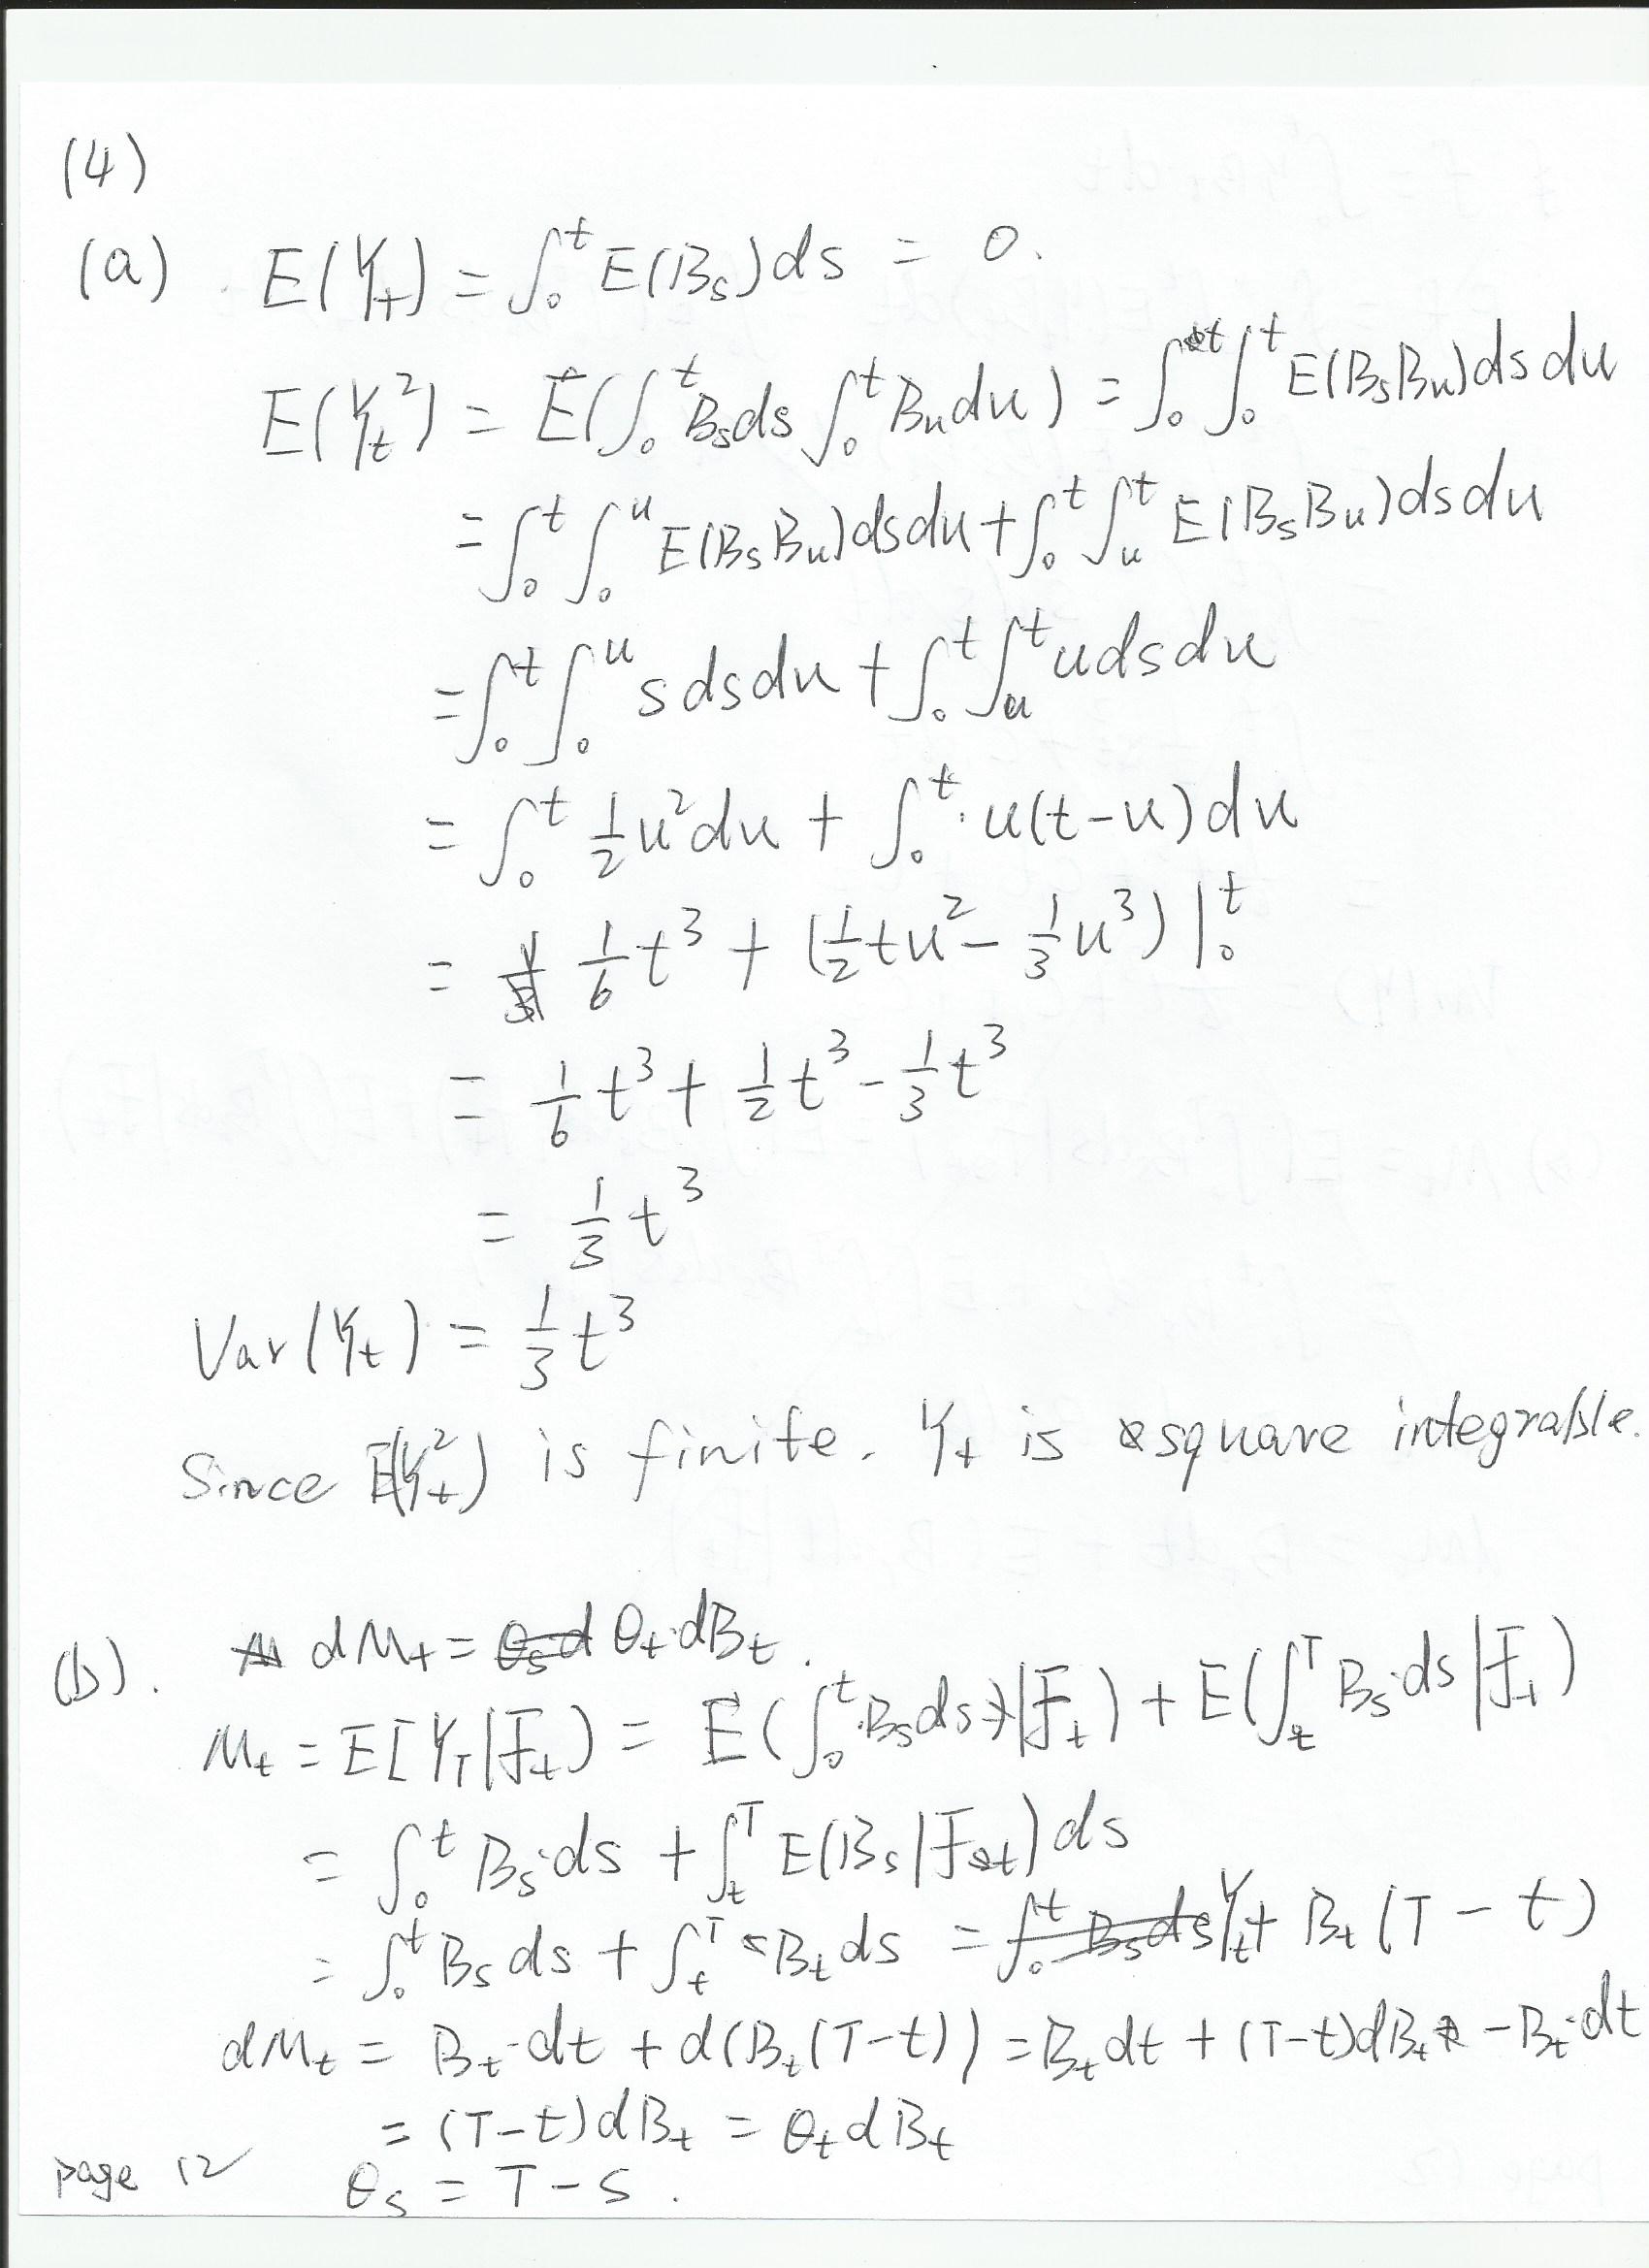 (4)
(a) E(Y_t) = ∫_0^t E(B_s) ds = 0.
E(Y_t^2) = E(∫_0^t B_s ds ∫_0^t B_u du) = ∫_0^t ∫_0^t E(B_s B_u) ds du
= ∫_0^t ∫_0^u E(B_s B_u) ds du + ∫_0^t ∫_u^t E(B_s B_u) ds du
= ∫_0^t ∫_0^u s ds du + ∫_0^t ∫_u^t u ds du
= ∫_0^t 1/2 u^2 du + ∫_0^t u(t-u) du
= 1/6 t^3 + (1/2 t u^2 - 1/3 u^3) |_0^t
= 1/6 t^3 + 1/2 t^3 - 1/3 t^3
= 1/3 t^3
Var(Y_t) = 1/3 t^3
Since E(Y_t^2) is finite. Y_t is square integrable.
(b). dM_t = θ_t·dB_t.
M_t = E[Y_T|F_t) = E(∫_0^t B_s ds|F_t) + E(∫_t^T B_s·ds|F_t)
= ∫_0^t B_s·ds + ∫_t^T E(B_s|F_t) ds
= ∫_0^t B_s ds + ∫_t^T B_t ds = Y_t + B_t (T - t)
dM_t = B_t·dt + d(B_t(T-t)) = B_t dt + (T-t)dB_t - B_t·dt
= (T-t)dB_t = θ_t dB_t
θ_s = T - s.
page 12